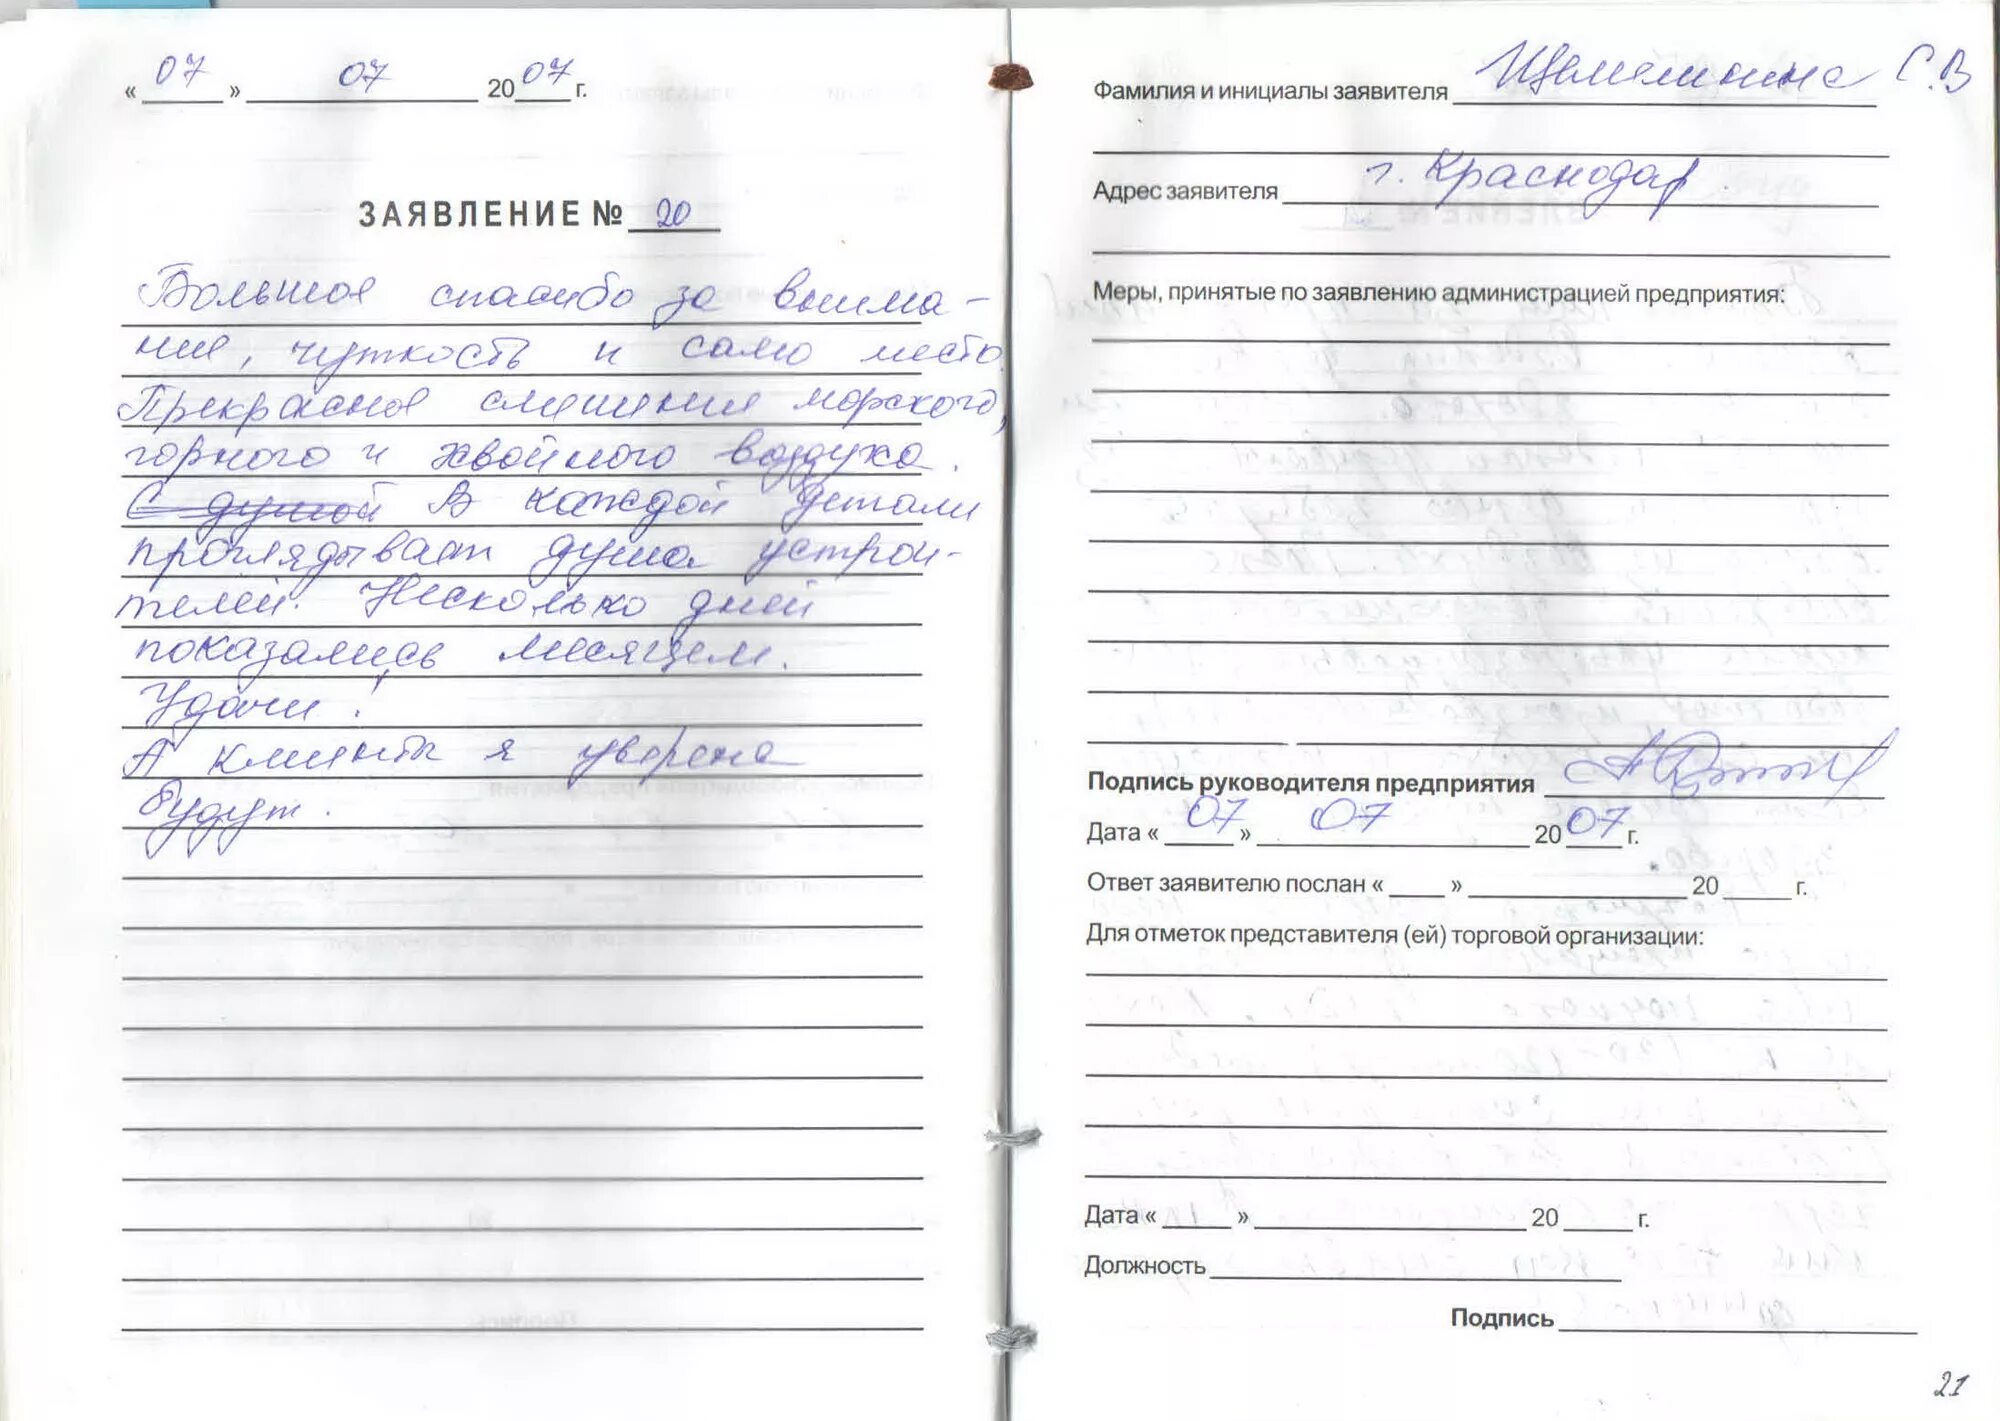 « 07 » 07 2007 г.
ЗАЯВЛЕНИЕ № 20
Большое спасибо за внима-
ние, чуткость и само место.
Прекрасное смешение морского,
горного и хвойного воздуха.
С душой В каждой детали
проглядывает душа устрои-
телей. Несколько дней
показались месяцем.
Удачи!
А клиенты я уверена
будут.
Фамилия и инициалы заявителя С.В
Адрес заявителя г. Краснодар
Меры, принятые по заявлению администрацией предприятия:
Подпись руководителя предприятия
Дата « 07 » 07 2007 г.
Ответ заявителю послан « » 20 г.
Для отметок представителя (ей) торговой организации:
Дата « » 20 г.
Должность
Подпись
21